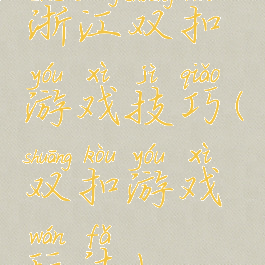 浙江双扣
yóu xì jì qiǎo
游戏技巧(
shuāng kòu yóu xì
双扣游戏
wán fǎ
玩法)